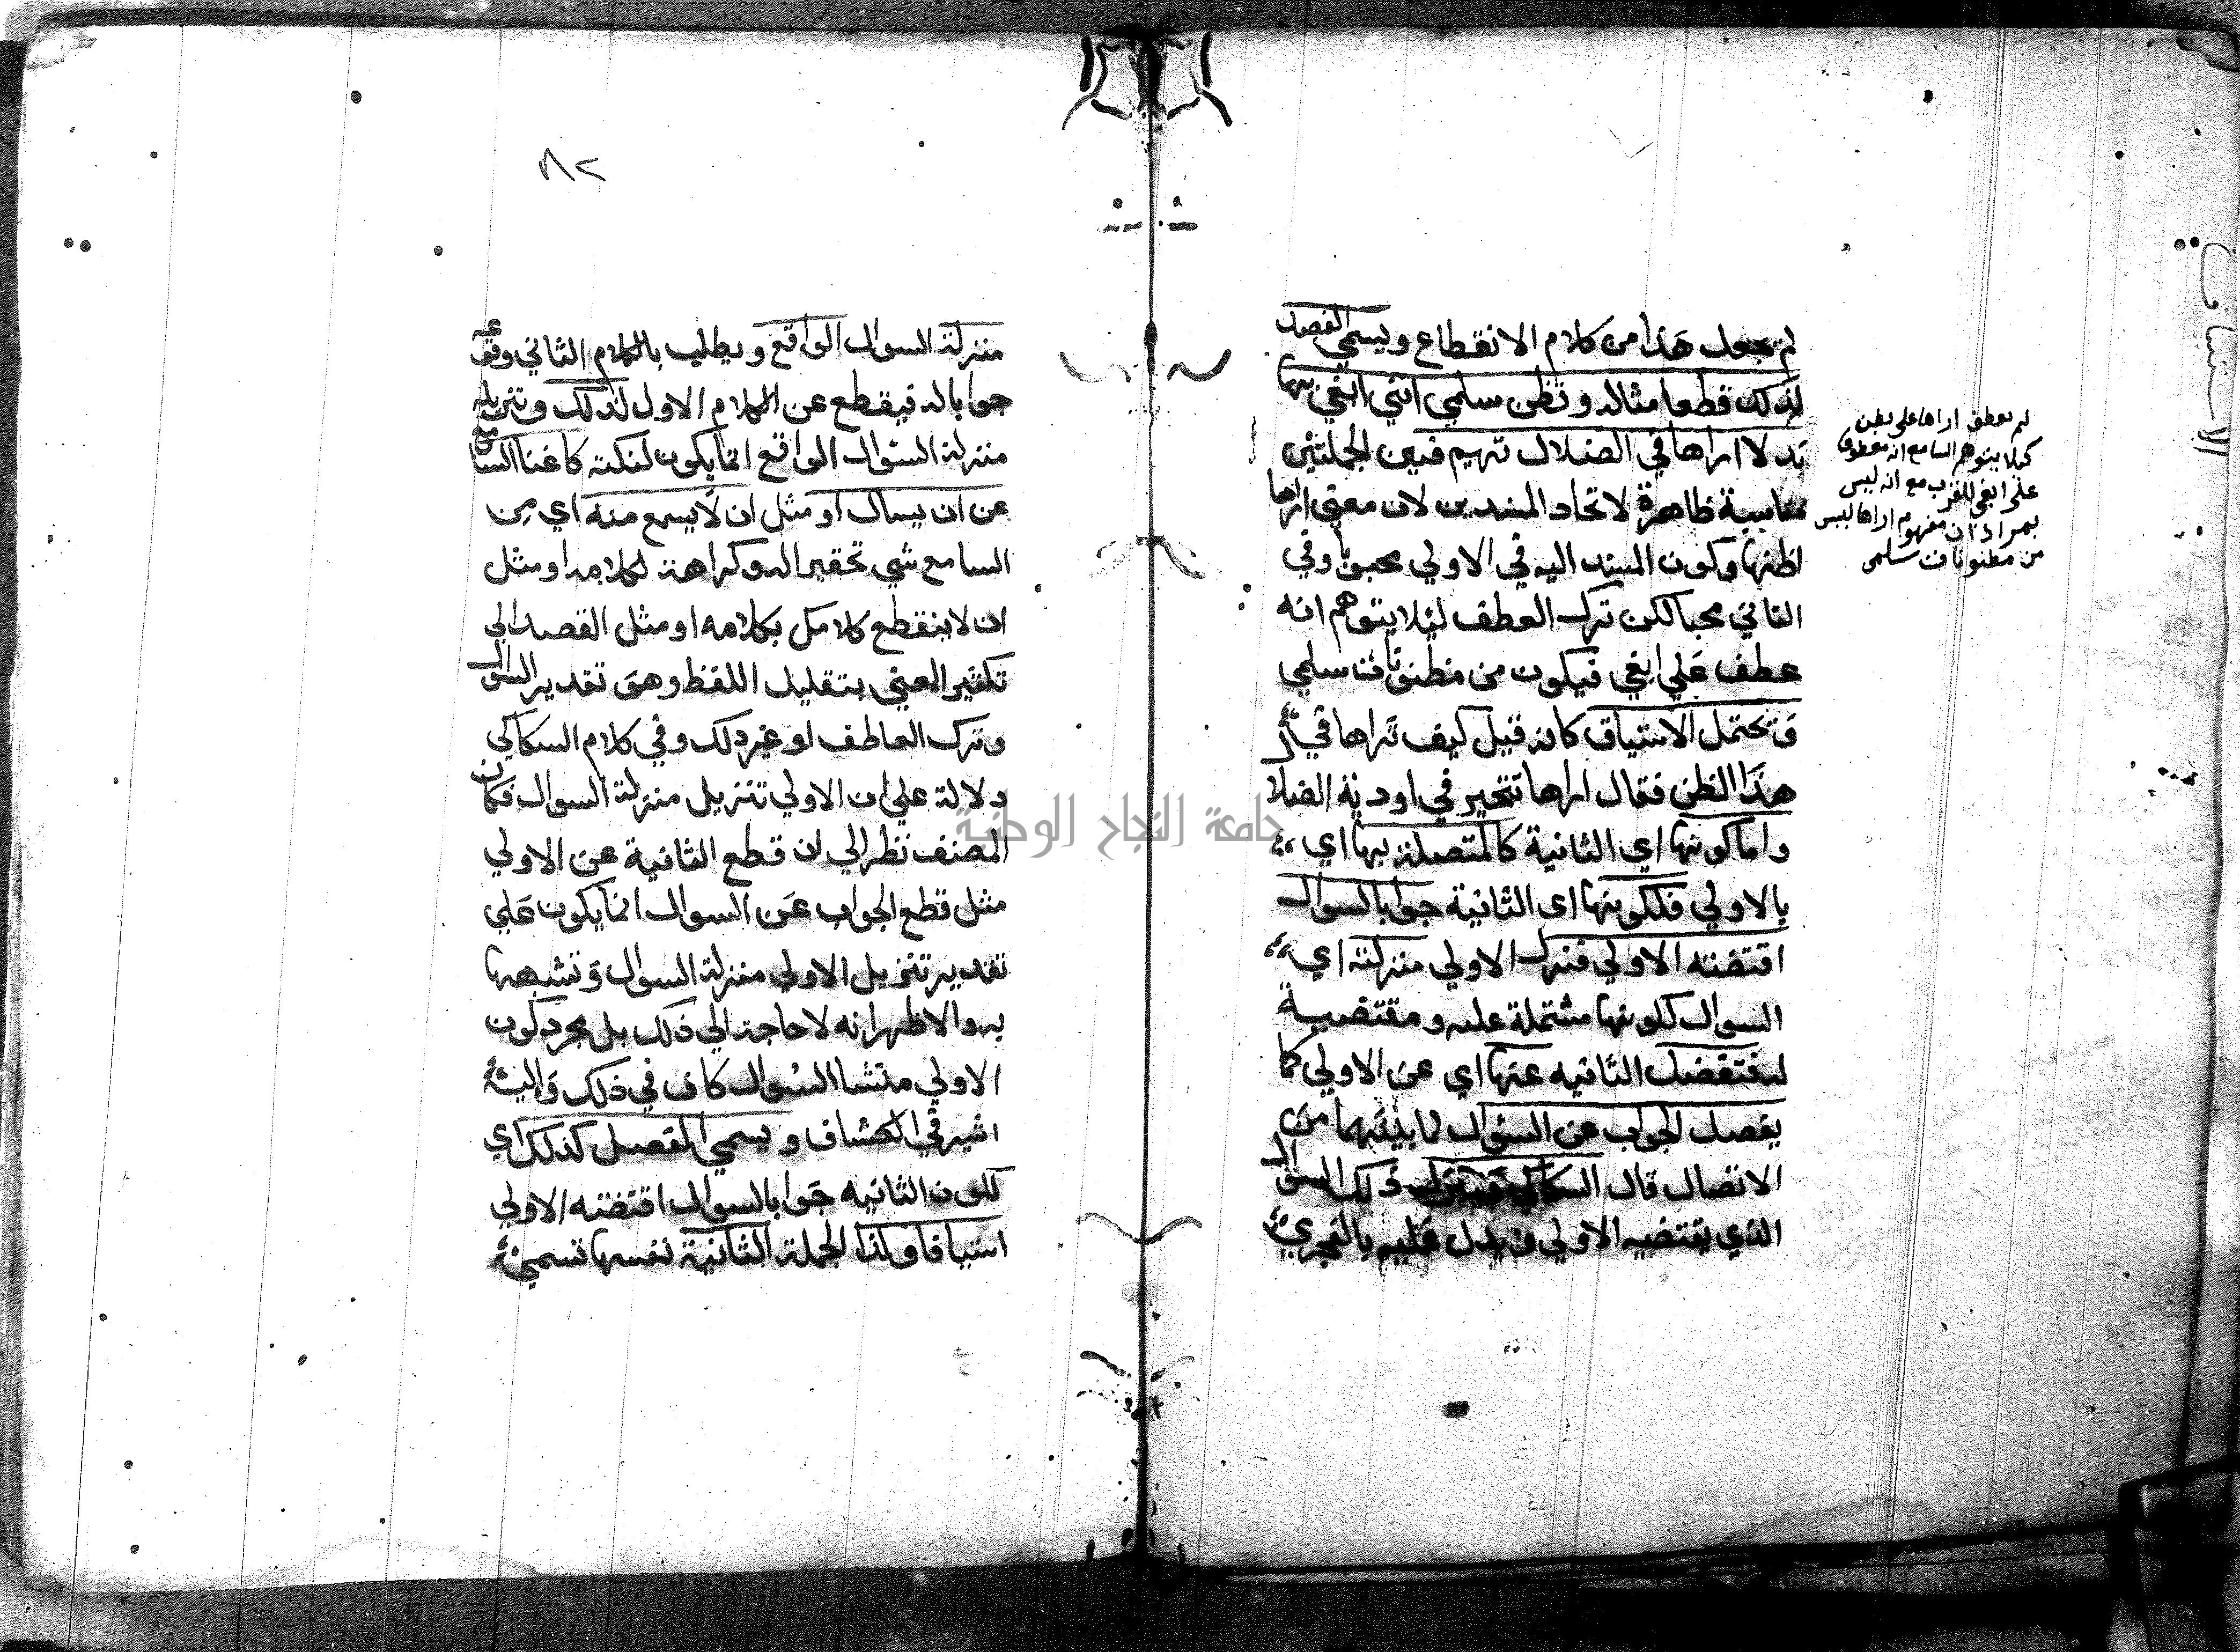 لم يجعل هذا من كلام الانقطاع ويسمي الفصل
لذلك قطعا مثاله وتظن سلمي انني ابغي بها
بدلا اراها في الضلال تهيم فبين الجملتين
مناسبة ظاهرة لاتحاد المسندين لان معني اراها
اظنها وكون المسند اليه في الاولي محبوبا وفي
الثاني محبا لكن ترك العطف ليلا يتوهم انه
عطف علي ابغي فيكون من مظنونات سلمي
ويحتمل الاستيناف كانه قيل كيف تراها في
هذا الظن فقال اراها تتحير في اودية الضلا
واما كونها اي الثانية كالمتصلة بها اي
بالاولي فلكونها اي الثانية جوابا لسوال
اقتضته الاولي فتنزل الاولي منزلته اي
السوال لكونها مشتملة عليه ومقتضية
له فتفصل الثانيه عنها اي عن الاولي كما
يفصل الجواب عن السؤال لما بينهما من
الاتصال قال السكاكي فينزل ذلك السوال
الذي تقتضيه الاولي ويدل عليه بالفحوي
لم يعطف اراها على تظن
كيلا يتوهم السامع انه معطوف
على ابغي للقرب مع انه ليس
بمراد ان مفهوم اراها ليس
من مظنونات سلمى
٨٢
منزلة السوال الواقع ويطلب بالكلام الثاني وقوعه
جوابا له فيقطع عن الكلام الاول لذلك وتنزيله
منزلة السؤال الواقع انما يكون لنكتة كاغنا السامع
عن ان يسال او مثل ان لا يسمع منه اي من
السامع شي تحقيرا له وكراهة لكلامه او مثل
ان لا ينقطع كلامك بكلامه او مثل القصد الي
تكثير المعني بتقليل اللفظ وهو تقدير السوال
وترك العاطف او غير ذلك وفي كلام السكاكي
دلالة علي ان الاولي تنزيل منزلة السوال فكان
المصنف نظر الي ان قطع الثانية عن الاولي
مثل قطع الجواب عن السوال انما يكون علي
تقدير تنزيل الاولي منزلة السوال وتشبهها
به والاظهر انه لا حاجة الي ذلك بل مجرد كون
الاولي منشا السؤال كاف في ذلك واليه
اشير في الكشاف ويسمي الفصل كذلك اي
لكون الثانيه جوابا لسوال اقتضته الاولي
استينافا وكذا الجملة الثانية نفسها تسمي
جامعة النجاح الوطنية